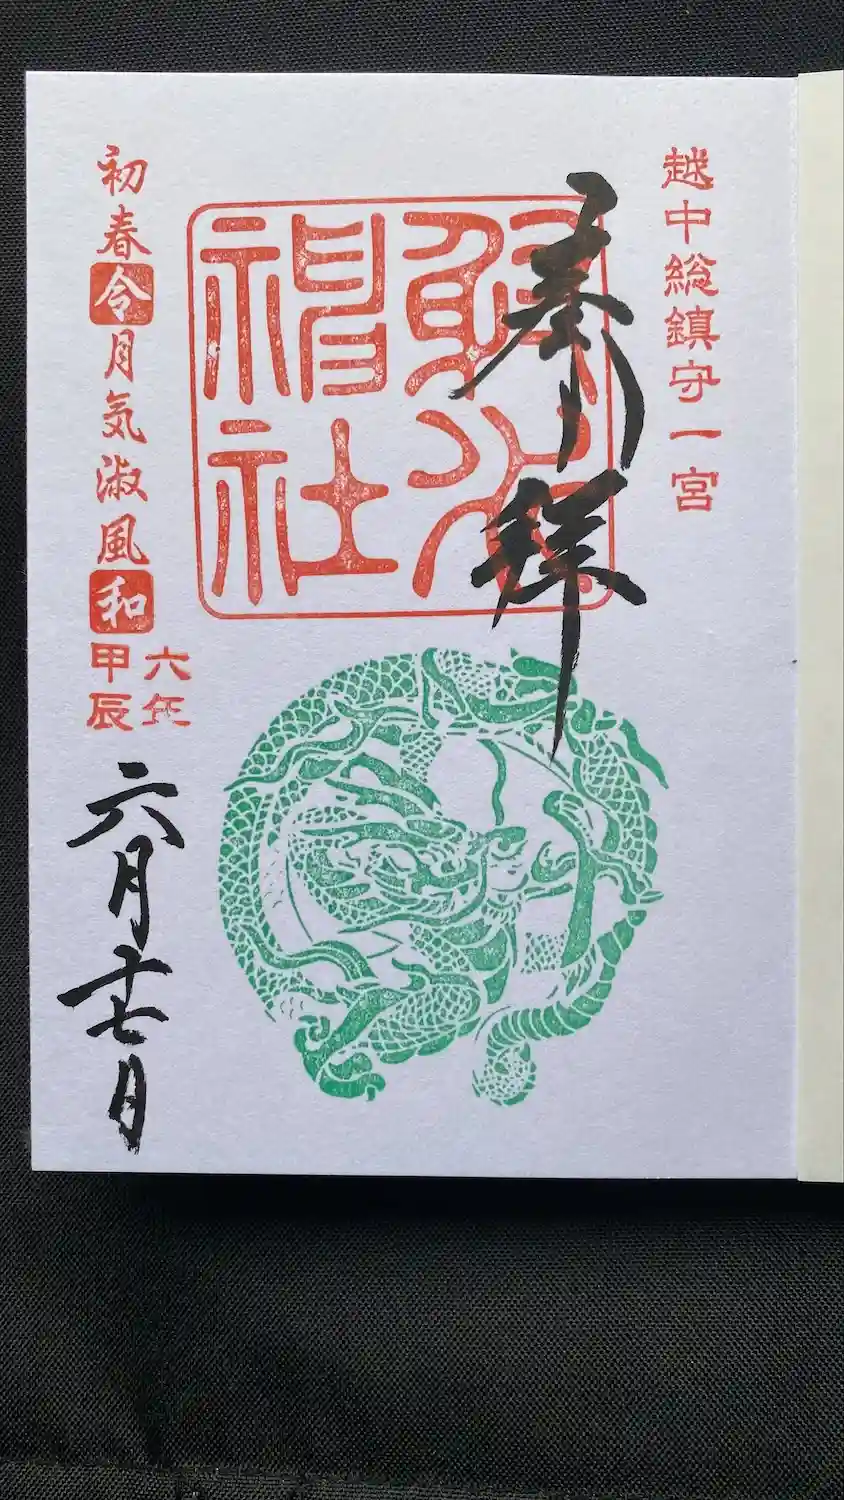 越中総鎮守一宮
奉拝
射水
神社
初春令月気淑風和
六年
甲辰
六月十七日